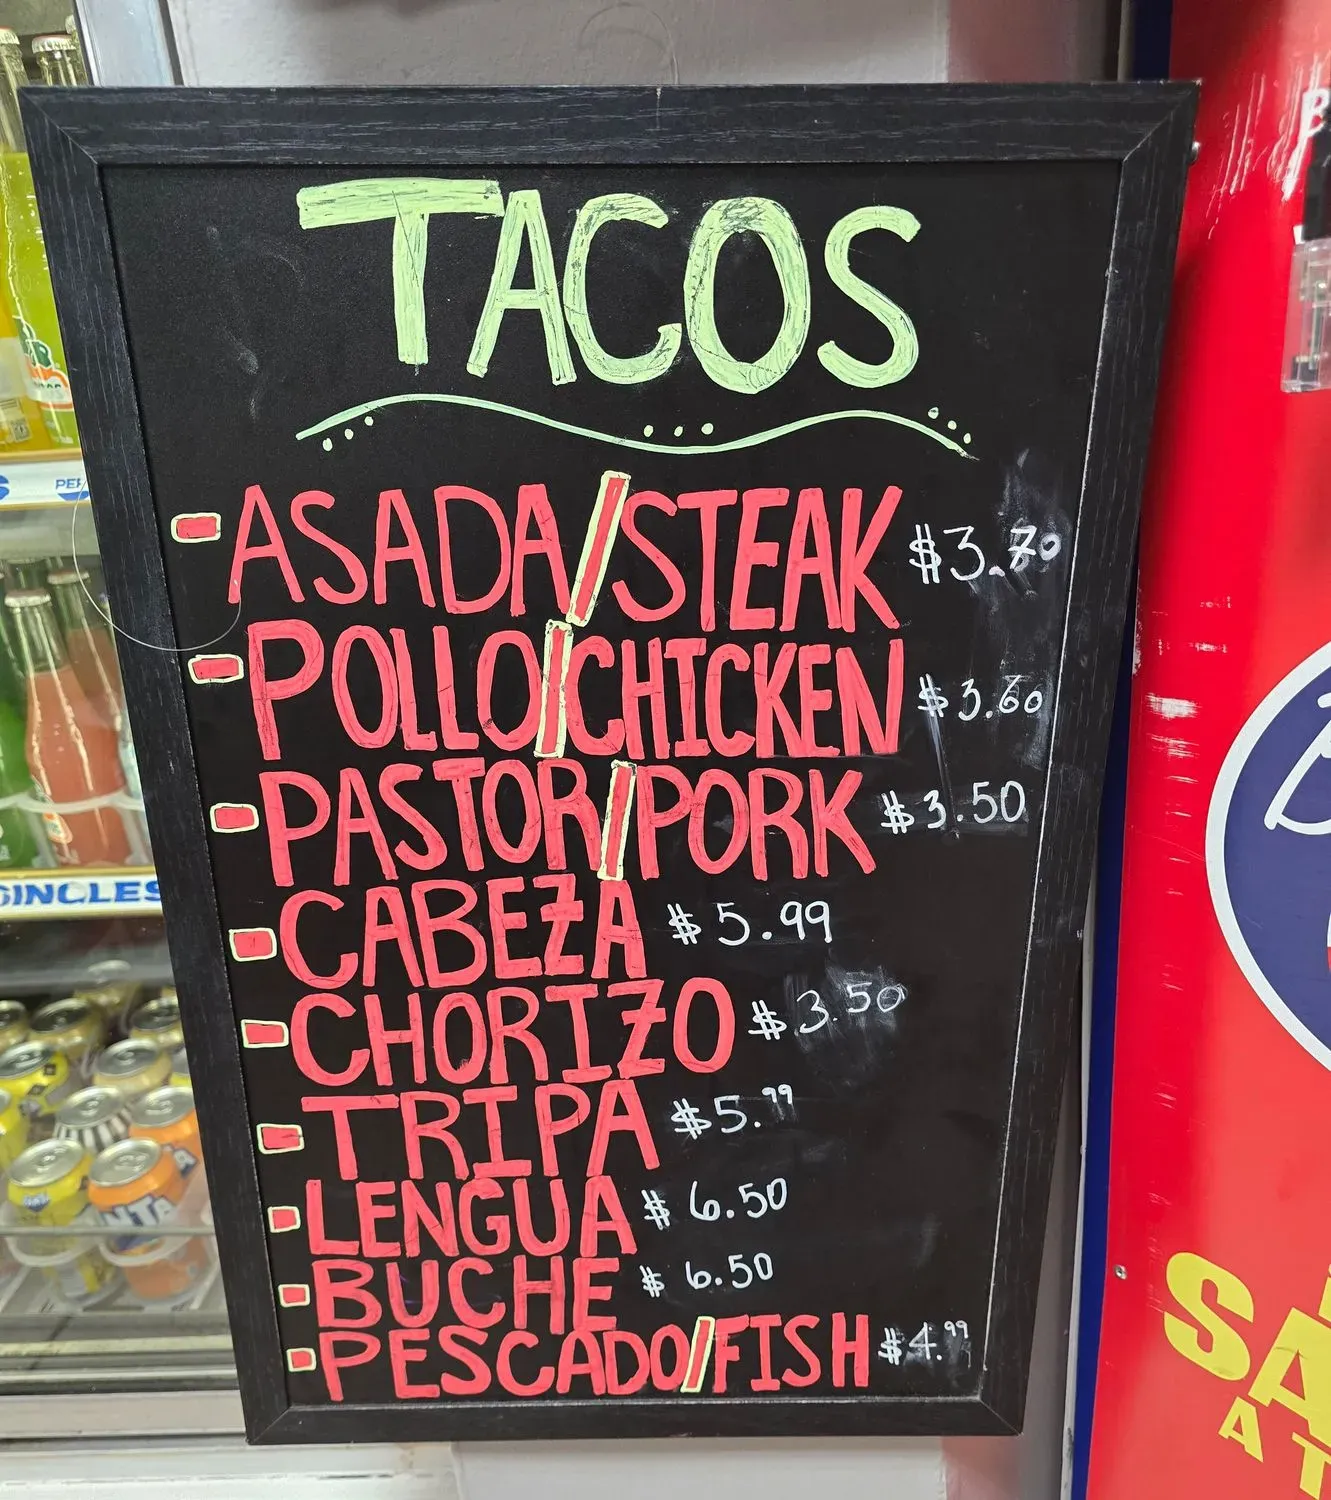 TACOS
ASADA/STEAK $3.70
POLLO/CHICKEN $3.60
PASTOR/PORK $3.50
CABEZA $5.99
CHORIZO $3.50
TRIPA $5.99
LENGUA $6.50
BUCHE $6.50
PESCADO/FISH $4.99
SINGLES